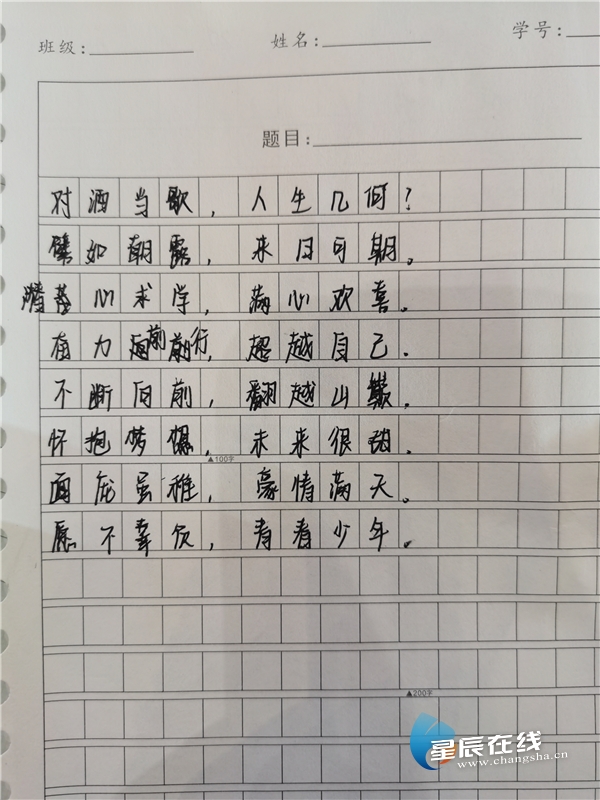 班级: 姓名: 学号:
题目:
对酒当歌，人生几何？
譬如朝露，来日可朝。
心求学，满心欢喜。
奋力前行，超越自己.
不断向前，翻越山
怀抱梦想，未来很甜.
▲100字
面庞虽稚，豪情满天。
愿不辜负，青春少年。
▲200字
星辰在线
www.changsha.cn